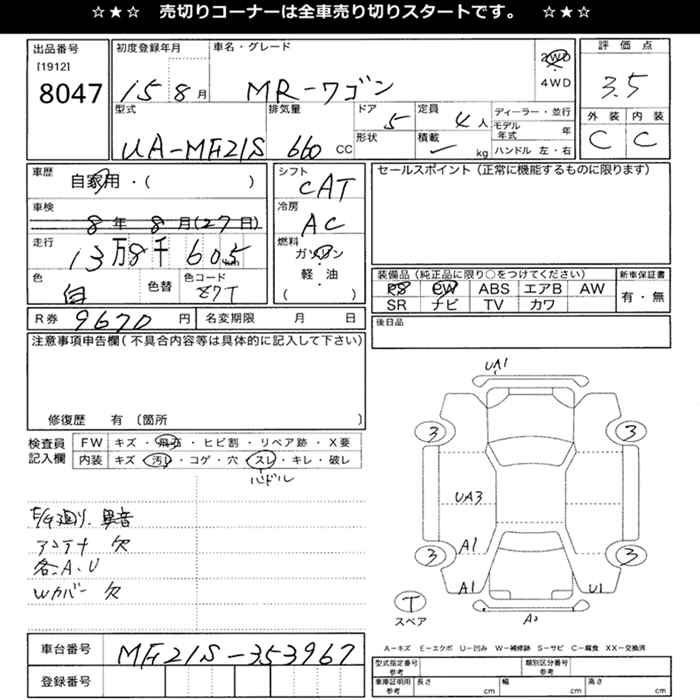 ☆★☆ 売切りコーナーは全車売り切りスタートです。 ☆★☆
出品番号 [1912] 8047
初度登録年月 15 8月
車名・グレード MR-ワゴン
2WD ・ 4WD
評価点 3.5
外装 内装
C C
型式 UA-MF21S
排気量 660 CC
ドア 5
形状
定員 4人
積載 kg
ディーラー・並行
モデル年式 年
ハンドル 左・右
車歴 自家用・( )
車検 8年8月(27日)
走行 13万8千605km
色 白
色替
色コード Z7T
シフト CAT
冷房 AC
燃料 ガソリン
軽・油
( )
セールスポイント(正常に機能するものに限ります)
装備品(純正品に限り○をつけてください)
PS PW ABS エアB AW
SR ナビ TV カワ
新車保証書 有・無
後日品
R券 9670 円
名変期限 月 日
注意事項申告欄(不具合内容等は具体的に記入して下さい)
修復歴 有〔箇所 〕
検査員記入欄
FW キズ・飛石・ヒビ割・リペア跡・X要
内装 キズ・汚れ・コゲ・穴・スレ・キレ・破レ
ハンドル
異音
アンテナ 欠
各.A.U
Wカバー 欠
UA1
3 3
UA3
A1
3 3
A1 U1
T
スペア
A-キズ E-エクボ U-凹み W-補修跡 S-サビ C-腐食 XX-交換済
車台番号 MF21S-353967
登録番号
型式指定番号 参考
類別区分番号 参考
車庫証明用 参考
長さ cm 幅 cm 高さ cm